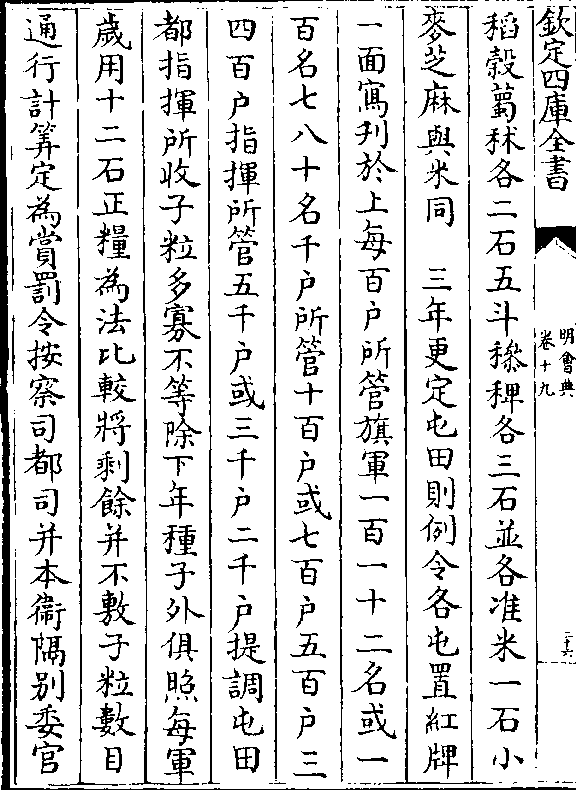 欽定四庫全書
明會典
卷十九
二十六
稻穀薥秫各二石五斗穇稗各三石並各准米一石小
麥芝麻與米同　三年更定屯田則例令各屯置紅牌
一面寫刋於上每百户所管旗軍一百一十二名或一
百名七八十名千户所管十百户或七百户五百户三
四百户指揮所管五千户或三千户二千户提調屯田
都指揮所收子粒多寡不等除下年種子外俱照每軍
歲用十二石正糧為法比較將剩餘并不敷子粒數目
通行計筭定為賞罰令按察司都司并本衞隔别委官